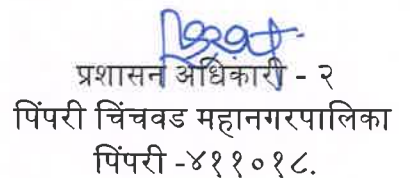 प्रशासन अधिकारी - २
पिंपरी चिंचवड महानगरपालिका
पिंपरी -४११०१८.